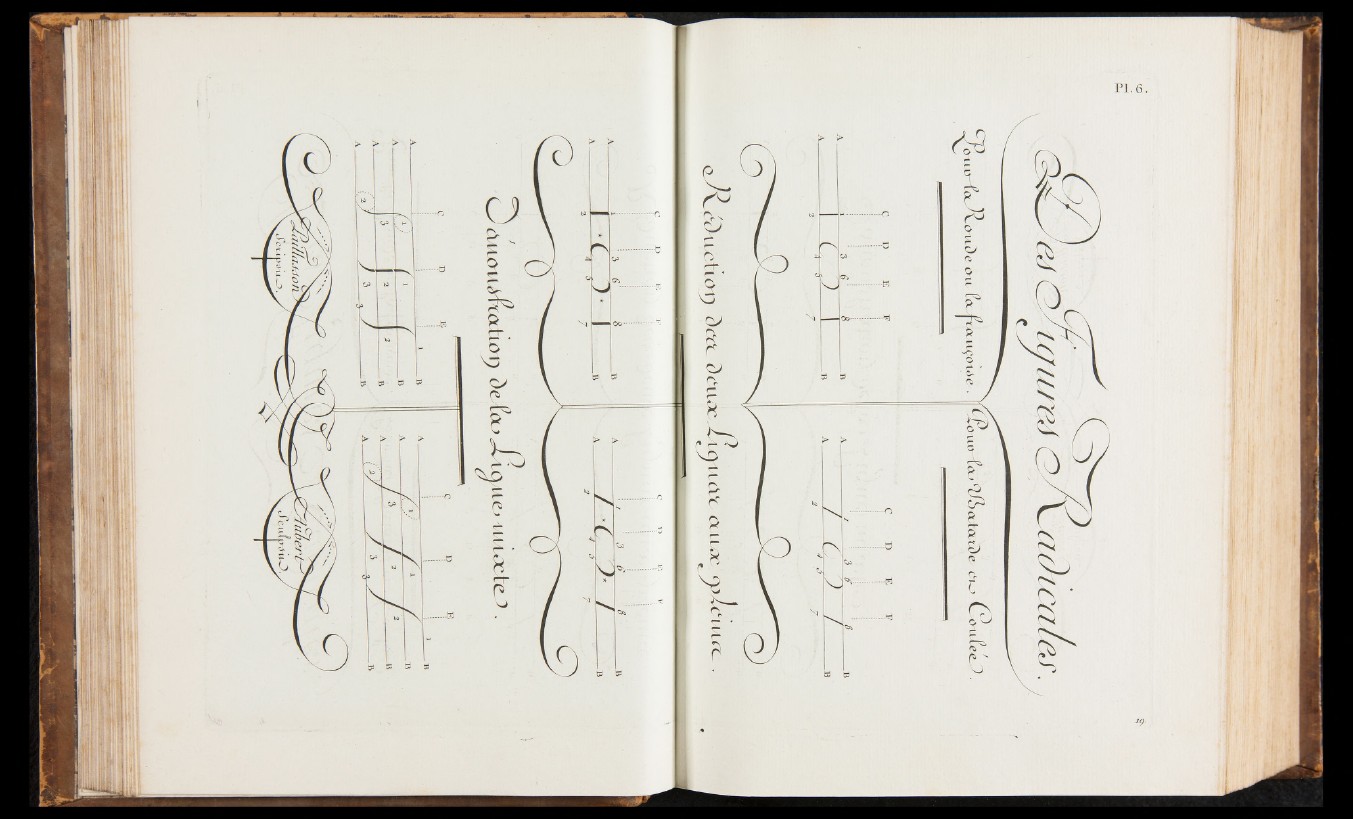 Pl. 6.
Des Figures Radicales.
Pour la Ronde ou la françoise.
Pour la Batarde et Coulée.
C D E F
A B
A B
1 3 6 8
2 4 5 7
C D E F
A B
A B
1 3 6 8
2 4 5 7
Réduction des deux Lignes aux pleins.
C D E F
A B
A B
1 3 6 8
2 4 5 7
C D E F
A B
A B
1 3 6 8
2 4 5 7
Démonstration de la Ligne mixte.
C D E
A B
A B
A B
A B
1 1 1
3 2 2
2 3 3
C D E
A B
A B
A B
A B
1 1 1
3 2 2
2 3 3
Paillasson
Scripsit.
Aubert
Sculpsit
19